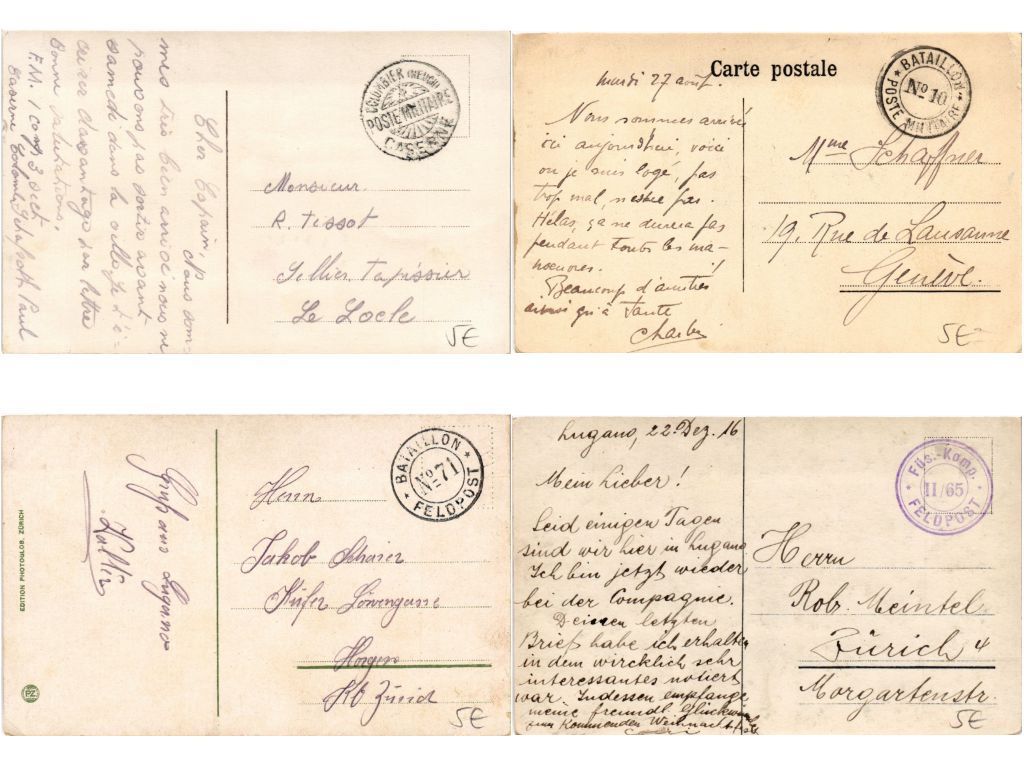 Cher Copain,
Nous som-
mes très bien arrivé nous ne
pouvons pas sortir avant
samedi dans la
Bonne salutations.
Caserne Colombier Paul
COLOMBIER (NEUCH.)
POSTE MILITAIRE
CASERNE
Monsieur.
R. Tissot
Sellier Tapissier
Le Locle
5E
Carte postale
BATAILLON
No 10
POSTE MILITAIRE
mardi 27 août.
Nous sommes arrivé
ici aujourd'hui, voici
où je suis logé, pas
trop mal, n'est ce pas.
Hélas, ça ne durera pas
pendant toutes les ma-
noeuvres.
Beaucoup d'amitiés
ainsi qu'à Tante
Mme Schaffner
19, Rue de Lausanne
Genève.
5E
EDITION PHOTOGLOB, ZÜRICH
PZ
Lugano
Walter
BATAILLON
No 71
FELDPOST
Herrn
Jakob
Küfer Löwengasse
Horgen
Kt Zürich
5E
Lugano, 22. Dez. 16
Mein Lieber!
Seid einigen Tagen
sind wir hier in Lugano
Ich bin jetzt wieder
bei der Compagnie.
Deinen letzten
Brief habe ich erhalten
in dem wircklich sehr
interessantes notiert
war. Indessen empfange
meine freundl. Glückwunsch
zum Kommenden Weihnacht
Füs.-Komp.
II/65
FELDPOST
Herrn
Rob. Meintel
Zürich 4
Morgartenstr.
5E